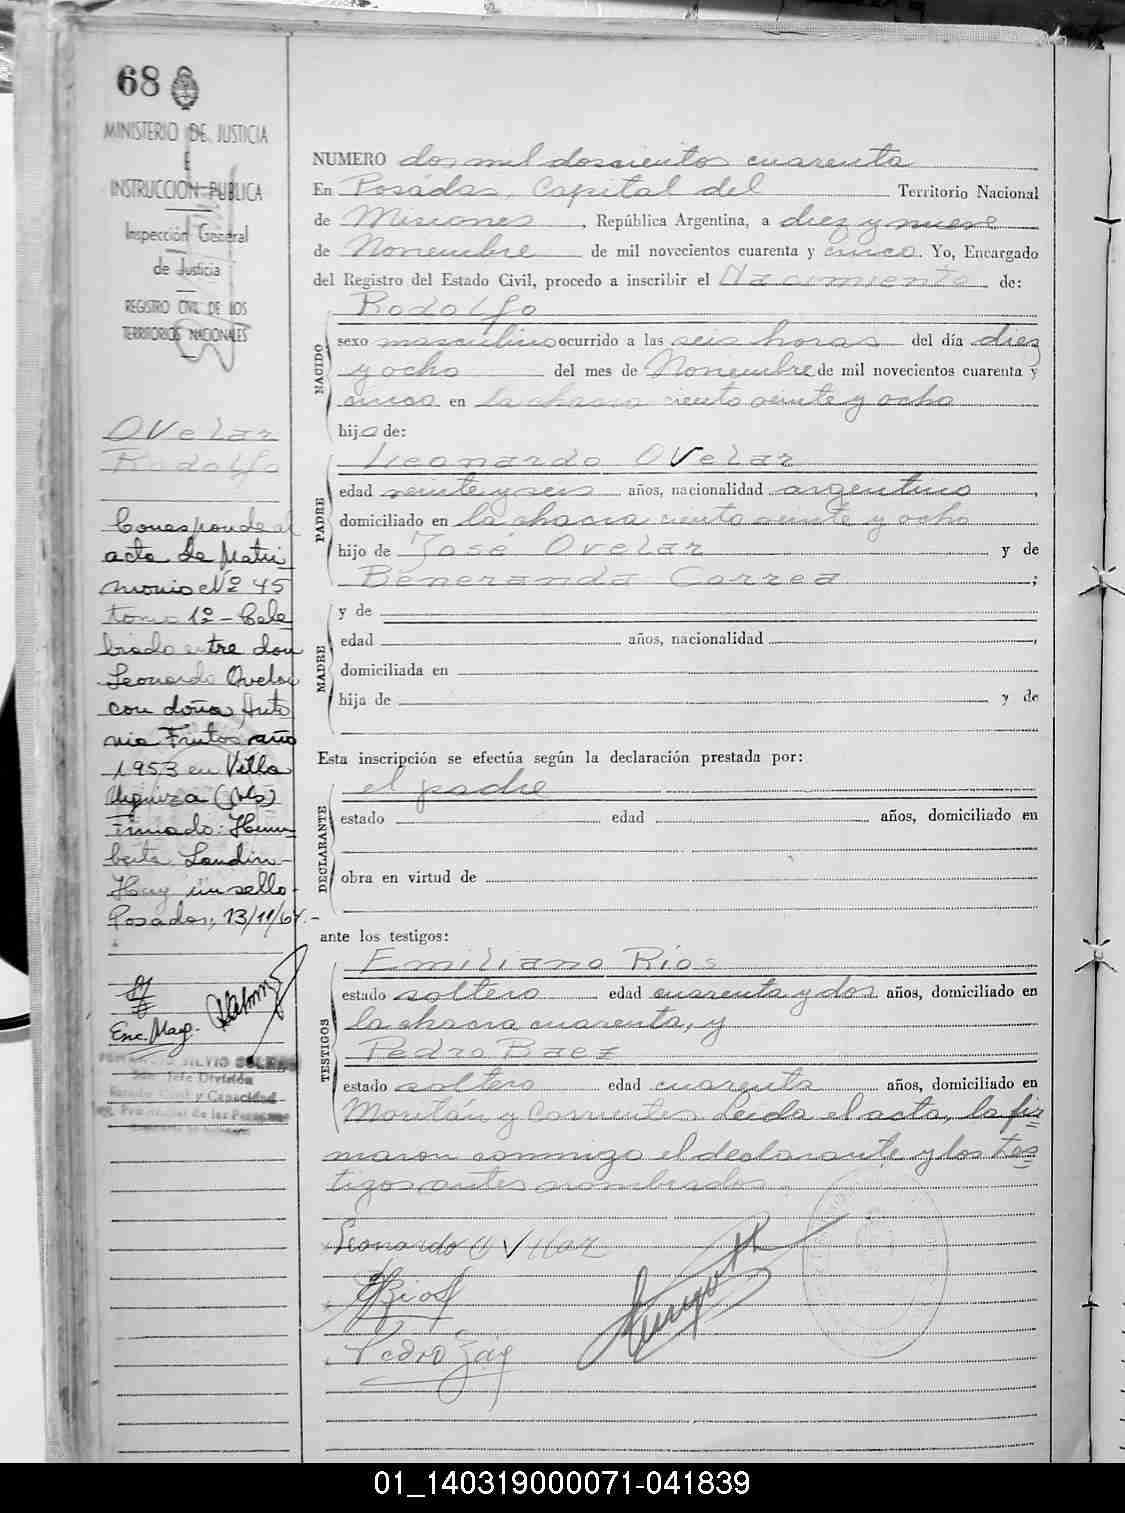 68
MINISTERIO DE JUSTICIA
E
INSTRUCCION PUBLICA
Inspección General
de Justicia
REGISTRO CIVIL DE LOS
TERRITORIOS NACIONALES
Ovelar
Rodolfo
Corresponde al
acta de Matri
monio Nº 45
tomo 1º - Cele
brado entre don
Leonardo Ovelar
con doña Anto
nia Frutos año
1953 en Villa
Urquiza (Ms)
Firmado: Hum
berto Landin -
Hay un sello -
Posadas, 13/11/67.-
Enc. Mag.
SILVIO
Jefe División
Estado Civil y Capacidad
Reg. Provincial de las Personas
NUMERO dos mil doscientos cuarenta
En Posadas, Capital del Territorio Nacional
de Misiones, República Argentina, a diez y nueve
de Noviembre de mil novecientos cuarenta y cinco. Yo, Encargado
del Registro del Estado Civil, procedo a inscribir el Nacimiento de:
NACIDO
Rodolfo
sexo masculino ocurrido a las seis horas del día diez
y ocho del mes de Noviembre de mil novecientos cuarenta y
cinco en la chacra ciento veinte y ocho
hijo de:
PADRE
Leonardo Ovelar
edad veinte y seis años, nacionalidad argentino,
domiciliado en la chacra ciento veinte y ocho
hijo de José Ovelar y de
Beneranda Correa;
MADRE
y de
edad años, nacionalidad,
domiciliada en
hija de y de
Esta inscripción se efectúa según la declaración prestada por:
DECLARANTE
el padre
estado edad años, domiciliado en
obra en virtud de
ante los testigos:
TESTIGOS
Emiliano Ríos
estado soltero edad cuarenta y dos años, domiciliado en
la chacra cuarenta, y
Pedro Baez
estado soltero edad cuarenta años, domiciliado en
y Corrientes. Leída el acta, la fir
maron conmigo el declarante y los tes
tigos antes nombrados.
Leonardo Ovelar
E Rios
Pedro
01_140319000071-041839